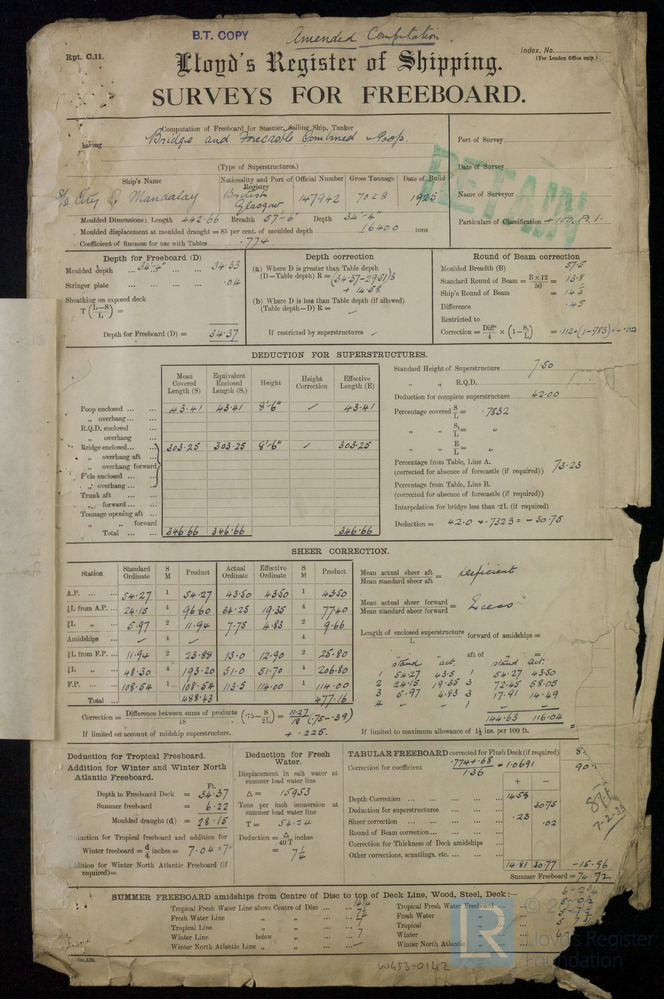 B.T. COPY
Amended Computation.
Rpt. C.11.
Index. No.
(For London Office only.)
Lloyd's Register of Shipping.
SURVEYS FOR FREEBOARD.
Computation of Freeboard for Steamer, Sailing Ship, Tanker
having Bridge and Forecastle Combined & Poop.
(Type of Superstructures.)
Port of Survey
Date of Survey
Name of Surveyor
Particulars of Classification +100 A.1.
RETAIN
Ship's Name
Nationality and Port of Registry
Official Number
Gross Tonnage
Date of Build
S/S City of Mandalay
British Glasgow
147942
7028
1925
Moulded Dimensions: Length 442.66 Breadth 57'-6" Depth 34'-4"
Moulded displacement at moulded draught = 85 per cent. of moulded depth 16400 tons
Coefficient of fineness for use with Tables .774
Depth for Freeboard (D)
Moulded depth ... 34'-4" ... ... 34.33
Stringer plate ... ... ... .04
Sheathing on exposed deck
T (L-S/L) =
Depth for Freeboard (D) = 34.37
Depth correction
(a) Where D is greater than Table depth
(D-Table depth) R = (34.37-29.51)3
+ 14.58
(b) Where D is less than Table depth (if allowed)
(Table depth-D) R =
If restricted by superstructures
Round of Beam correction
Moulded Breadth (B) 57.5
Standard Round of Beam = B×12/50 = 13.8
Ship's Round of Beam = 14¼
Difference .45
Restricted to
Correction = Diff/4 × (1-S₁/L) = .112 (1-.783) = -.02
DEDUCTION FOR SUPERSTRUCTURES.
Mean Covered Length (S)
Equivalent Enclosed Length (S₁)
Height
Height Correction
Effective Length (E)
Poop enclosed ... ... 43.41 43.41 8'-6" ✓ 43.41
„ overhang ... ...
R.Q.D. enclosed
„ overhang
Bridge enclosed... ... 303.25 303.25 8'-6" ✓ 303.25
„ overhang aft ...
„ overhang forward
F'cle enclosed ... ...
„ overhang ... ...
Trunk aft ... ...
„ forward ... ...
Tonnage opening aft ...
„ „ forward
Total ... ... 346.66 346.66 346.66
Standard Height of Superstructure 7.50
„ „ R.Q.D.
Deduction for complete superstructure 42.00
Percentage covered S/L = .7832
„ „ S₁/L = „
„ „ E/L = „
Percentage from Table, Line A. 73.23
(corrected for absence of forecastle (if required))
Percentage from Table, Line B.
(corrected for absence of forecastle (if required))
Interpolation for bridge less than ·2L (if required)
Deduction = 42.0 × .7323 = -30.75
SHEER CORRECTION.
Station
Standard Ordinate
S M
Product
Actual Ordinate
Effective Ordinate
S M
Product
A.P. ... ... 54.27 1 54.27 43.50 43.50 1 43.50
⅙L from A.P. ... 24.15 4 96.60 34.25 19.35 4 77.40
⅓L „ ... 5.97 2 11.94 7.75 4.83 2 9.66
Amidships ... ✓ 4 ✓ 4
⅓L from F.P. ... 11.94 2 23.88 13.0 12.90 2 25.80
⅙L „ ... 48.30 4 193.20 51.0 51.70 4 206.80
F.P. ... ... 108.54 1 108.54 113.5 114.00 1 114.00
Total ... 488.43 477.16
Correction = Difference between sums of products/18 (·75-S/2L) = 11.27/18 (.75-.39)
If limited on account of midship superstructure. + .225.
Mean actual sheer aft / Mean standard sheer aft = Deficient
Mean actual sheer forward / Mean standard sheer forward = Excess
Length of enclosed superstructure/L forward of amidships =
„ „ aft of „ =
stand act. stand act.
1 54.27 43.5 1 54.27 43.50
3 24.15 19.35 3 72.45 58.05
3 5.97 4.83 3 17.91 14.49
144.63 116.04
If limited to maximum allowance of 1½ ins. per 100 ft.
Deduction for Tropical Freeboard.
Addition for Winter and Winter North
Atlantic Freeboard.
Ft.
Depth to Freeboard Deck = 34.37
Summer freeboard = 6.22
Moulded draught (d) = 28.15
Deduction for Tropical freeboard and addition for
Winter freeboard = d/4 inches = 7.04 = 7"
Addition for Winter North Atlantic Freeboard (if
required)=
Deduction for Fresh Water.
Displacement in salt water at
summer load water line
Δ = 15953
Tons per inch immersion at
summer load water line
T = 54.24
Deduction = Δ/40T inches
= 7¼
TABULAR FREEBOARD corrected for Flush Deck (if required)
Correction for coefficient .774+.68/1.36 = 1.0691
+ -
Depth Correction ... 14.58
Deduction for superstructures ... 30.75
Sheer correction ... .23
Round of Beam correction ... .02
Correction for Thickness of Deck amidships
Other corrections, scantlings, etc. ...
14.81 30.77 -15.96
Summer Freeboard = 74.72
7-2-33
SUMMER FREEBOARD amidships from Centre of Disc to top of Deck Line, Wood, Steel, Deck:—
Tropical Fresh Water Line above Centre of Disc ... 14¼
Fresh Water Line „ „ 7¼
Tropical Line „ „ 7
Winter Line below „ 7
Winter North Atlantic Line „ „
Tropical Fresh Water Freeboard
Fresh Water „
Tropical „
Winter „
Winter North Atlantic „
W453-0142
LR
Lloyd's Register
Foundation